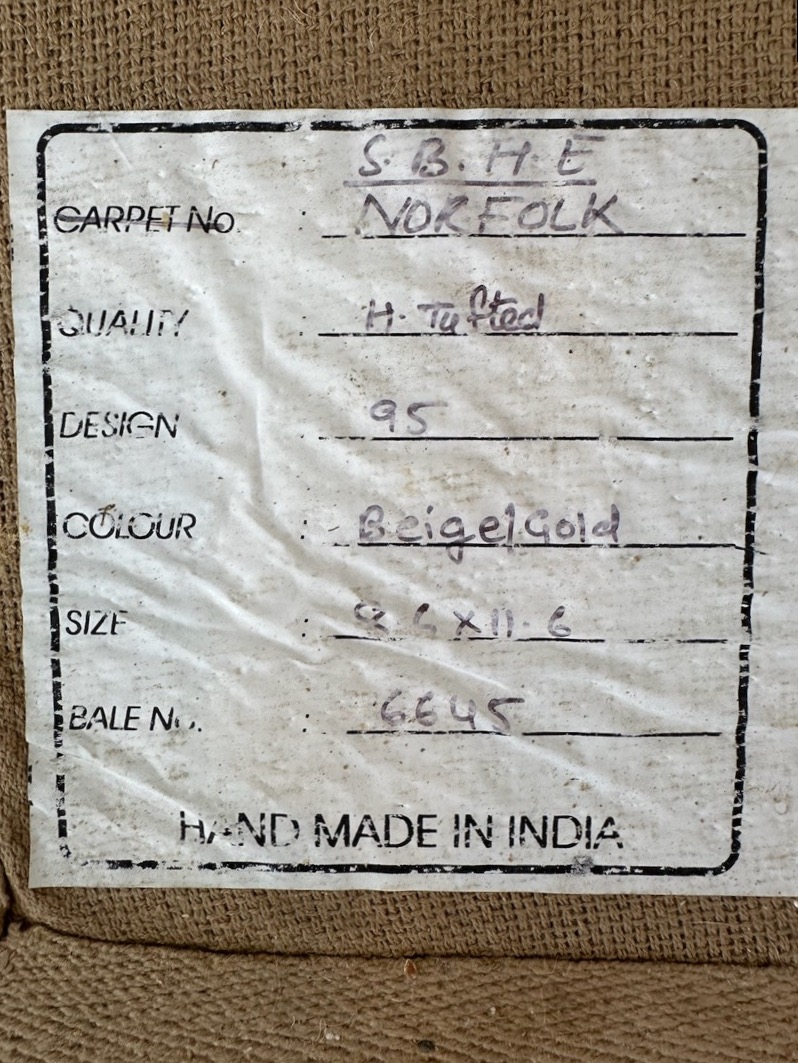 S.B.H.E
CARPET No : NORFOLK
QUALITY : H. Tufted
DESIGN : 95
COLOUR : Beige/Gold
SIZE : 8.6 X 11.6
BALE No. : 6645
HAND MADE IN INDIA